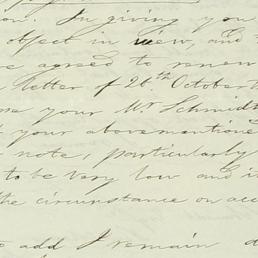 on. In giving you
object in view, and
agreed to renew
letter of 26th October
your Mr Schmidt
your abovementione
note, particularly
to be very low and i
the circumstance on acc
add I remain d